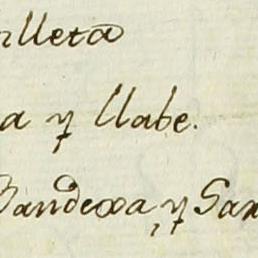 lleta
a y llabe.
Bandexa, y Sar